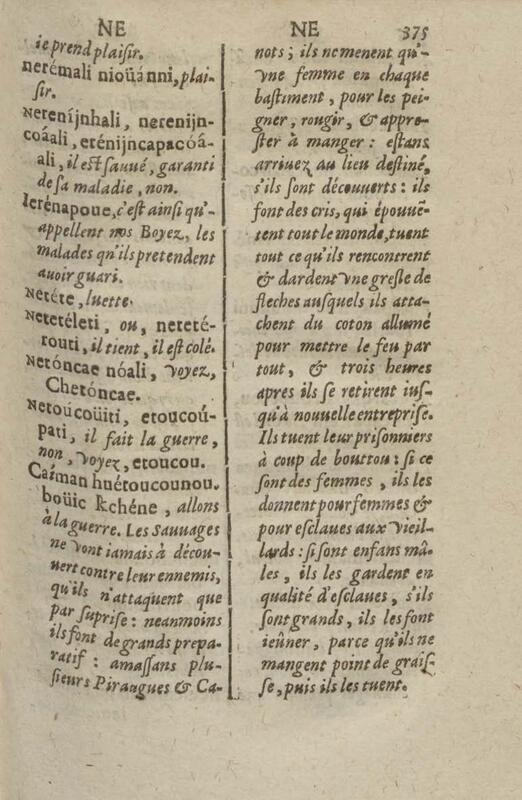 NE
NE 375
ie prend plaisir.
nerémali nioüánni, plai-
sir.
Nerenijnhali, nerenijn-
coáali, erénijncapacóá-
ali, il est sauué, garanti
de sa maladie, non.
Ierénapoue, c'est ainsi qu'-
appellent nos Boyez, les
malades qu'ils pretendent
auoir guari.
Netéte, luette.
Neteteleti, ou, neteté-
touti, il tient, il est colé.
Netóncae nóali, voyez,
Chetóncae.
Netoucoüiti, etoucoú-
pati, il fait la guerre,
non, voyez, etoucou.
Caíman huétoucounou.
boüic kchéne, allons
à la guerre. Les Sauuages
ne vont iamais à décou-
uert contre leur ennemis,
qu'ils n'attaquent que
par suprise: neanmoins
ils font de grands prepa-
ratif: amassans plu-
sieurs Piraugues & Ca-
nots; ils ne menent qu'-
vne femme en chaque
bastiment, pour les pei-
gner, rougir, & appre-
ster à manger: estans
arriuez au lieu destiné,
s'ils sont découuerts: ils
font des cris, qui épouuē-
tent tout le monde, tuent
tout ce qu'ils rencontrent
& dardent vne gresle de
fleches ausquels ils atta-
chent du coton allumé
pour mettre le feu par
tout, & trois heures
apres ils se retirent ius-
qu'à nouuelle entreprise.
Ils tuent leur prisonniers
à coup de bouttou: si ce
sont des femmes, ils les
donnent pour femmes &
pour esclaues aux vieil-
lards: si sont enfans mâ-
les, ils les gardent en
qualité d'esclaues, s'ils
sont grands, ils les font
ieûner, parce qu'ils ne
mangent point de grais-
se, puis ils les tuent.